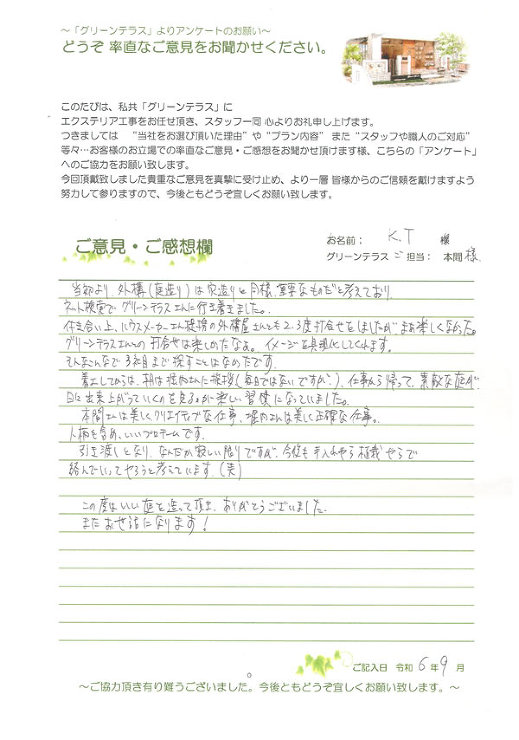 ～「グリーンテラス」よりアンケートのお願い～
どうぞ 率直なご意見をお聞かせください。
このたびは、私共「グリーンテラス」に
エクステリア工事をお任せ頂き、スタッフ一同 心よりお礼申し上げます。
つきましては “当社をお選び頂いた理由”や“プラン内容” また“スタッフや職人のご対応”
等々…お客様のお立場での率直なご意見・ご感想をお聞かせ頂けます様、こちらの「アンケート」
へのご協力をお願い致します。
今回頂戴致しました貴重なご意見を真摯に受け止め、より一層 皆様からのご信頼を戴けますよう
努力して参りますので、今後ともどうぞ宜しくお願い致します。
ご意見・ご感想欄
お名前： K.T 様
グリーンテラス ご担当： 本間様
当初より、外構(庭造り)は家造りと同様、重要なものだと考えており、
ネット検索でグリーンテラスさんに行き着きました。
付き合い上、ハウスメーカーさん提携の外構屋さんとも2.3度打合せをしましたが、まぁ楽しくなかった。
グリーンテラスさんの打合せは楽しかったなぁ。イメージを具現化してくれます。
そんなこんなで3社目まで探すことはなかったです。
着工してからは、朝は堀内さんに挨拶(毎日ではないですが。)、仕事から帰って、素敵な庭が
日に出来上がっていくのを見るのが楽しい習慣になっていました。
本間さんは美しくクリエイティブな仕事、堀内さんは美しく正確な仕事。
人柄も含め、いいプロチームです。
引き渡しとなり、なんだか寂しい限りですが、今後も手入れやら植栽やらで
絡んでいってやろうと考えています(笑)
この度はいい庭を造って頂き、ありがとうございました。
またお世話になります！
ご記入日 令和 6 年 9 月
～ご協力頂き有り難うございました。今後ともどうぞ宜しくお願い致します。～